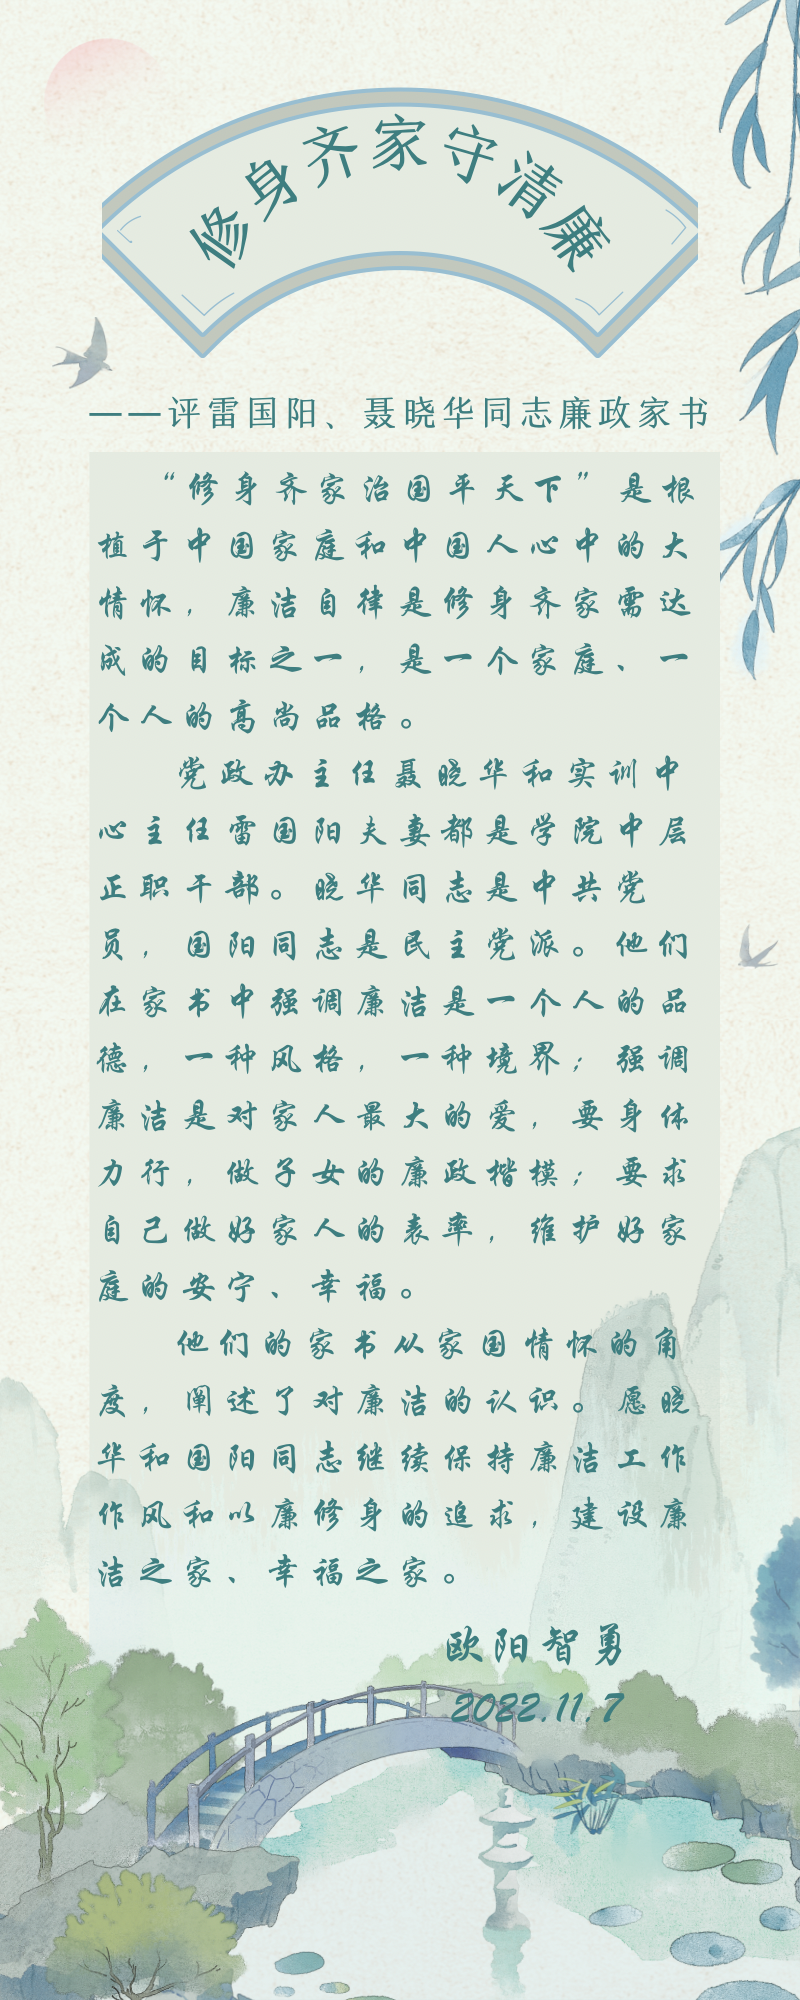 修身齐家守清廉
——评雷国阳、聂晓华同志廉政家书
“修身齐家治国平天下”是根
植于中国家庭和中国人心中的大
情怀，廉洁自律是修身齐家需达
成的目标之一，是一个家庭、一
个人的高尚品格。
党政办主任聂晓华和实训中
心主任雷国阳夫妻都是学院中层
正职干部。晓华同志是中共党
员，国阳同志是民主党派。他们
在家书中强调廉洁是一个人的品
德，一种风格，一种境界；强调
廉洁是对家人最大的爱，要身体
力行，做子女的廉政楷模；要求
自己做好家人的表率，维护好家
庭的安宁、幸福。
他们的家书从家国情怀的角
度，阐述了对廉洁的认识。愿晓
华和国阳同志继续保持廉洁工作
作风和以廉修身的追求，建设廉
洁之家、幸福之家。
欧阳智勇
2022.11.7